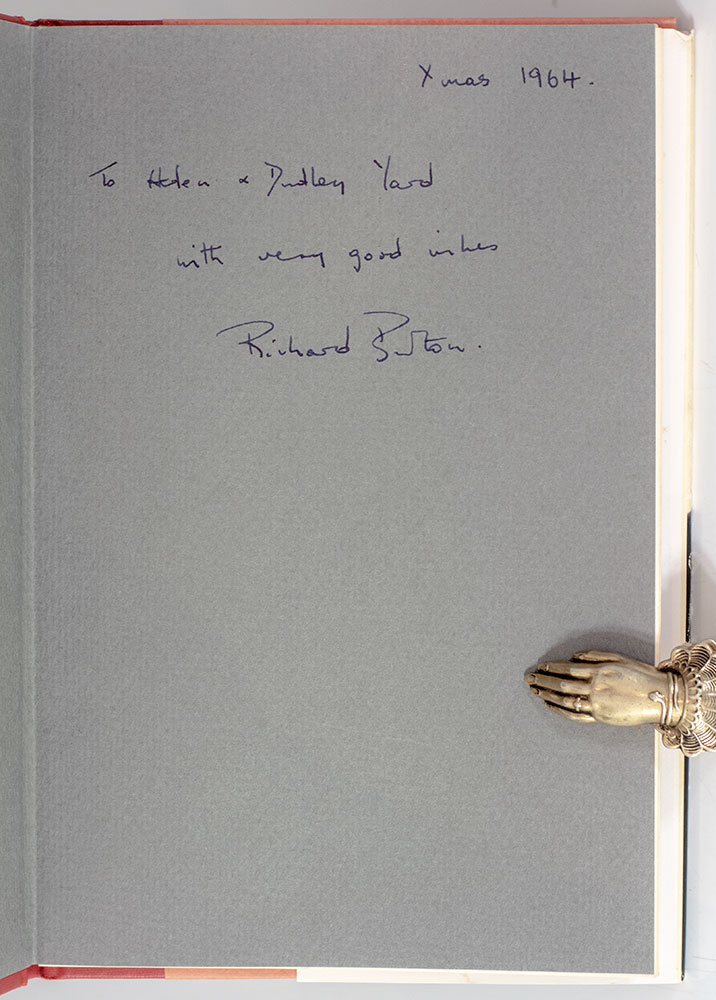 Xmas 1964.
To Helen & Dudley Yard
with very good wishes
Richard Burton.